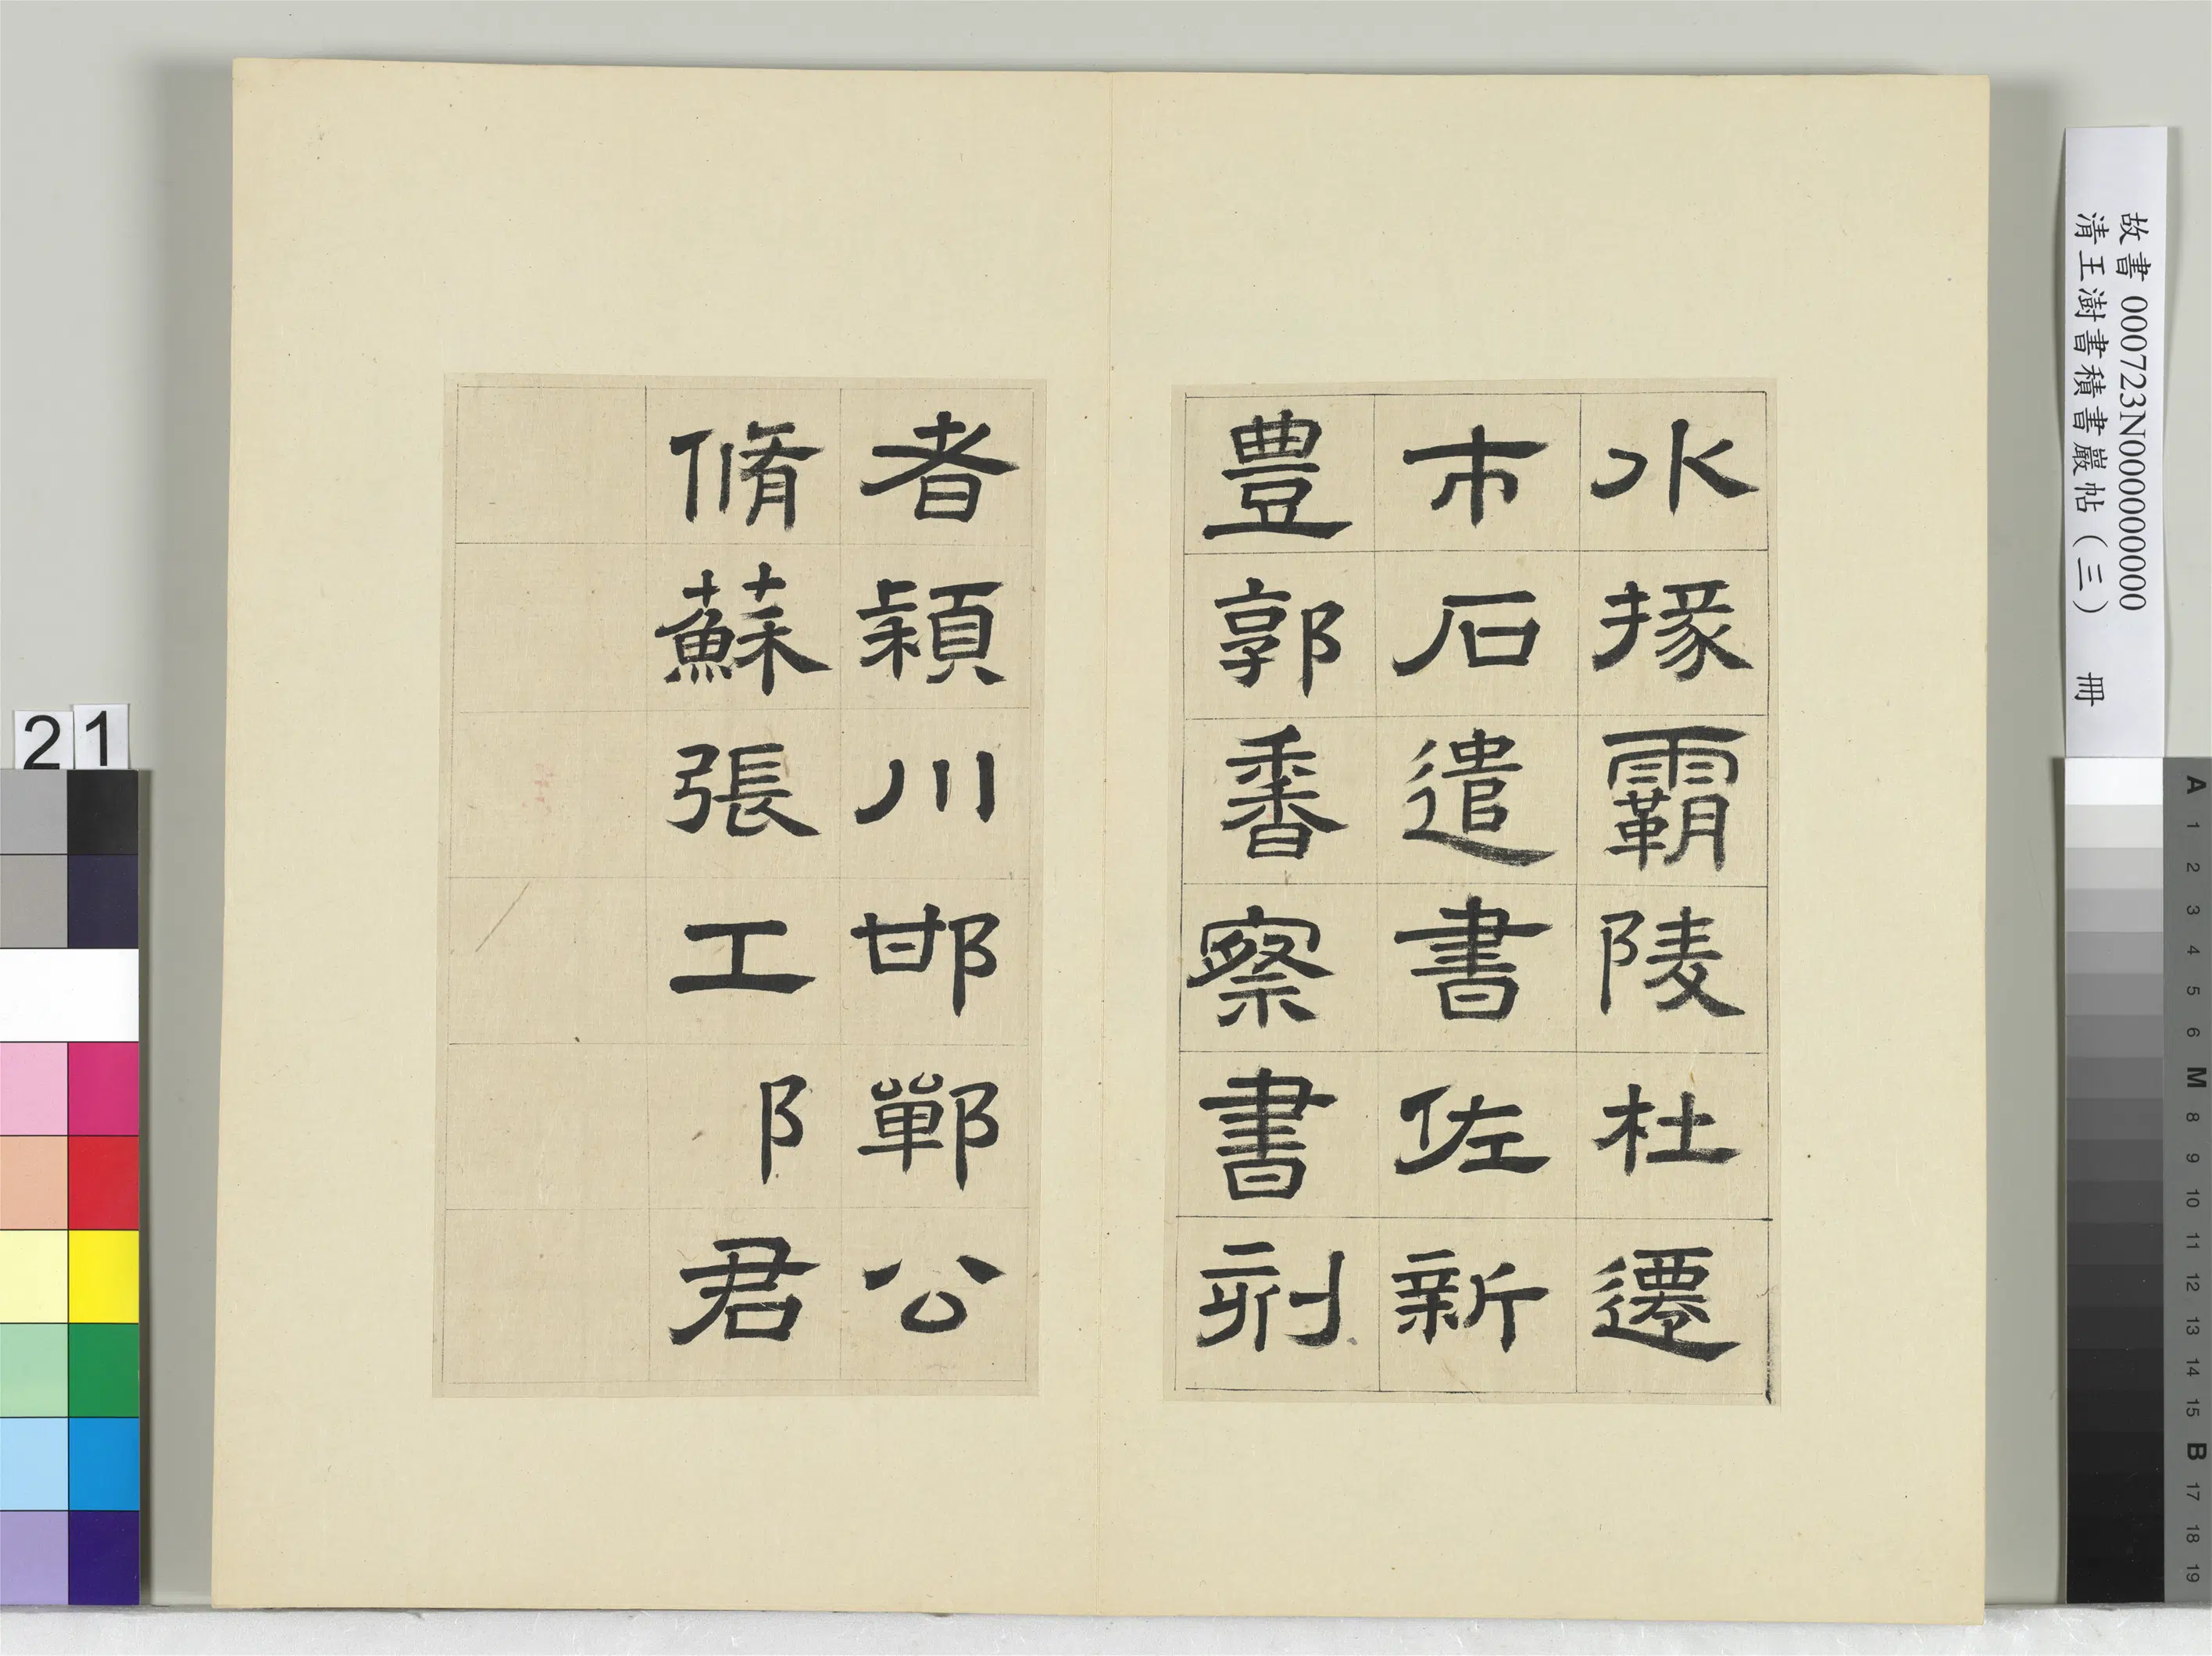 水掾霸陵杜遷
市石遣書佐新
豊郭香察書刻
者潁川邯鄲公
脩蘇張工阝君
故書 000723N000000000
清王澍書積書巖帖（三） 冊
21
A 1 2 3 4 5 6 M 8 9 10 11 12 13 14 15 B 17 18 19